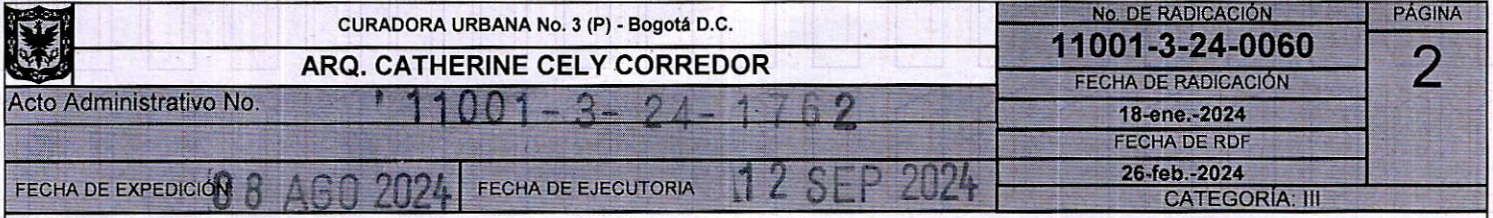 CURADORA URBANA No. 3 (P) - Bogotá D.C.
ARQ. CATHERINE CELY CORREDOR
Acto Administrativo No. 11001-3-24-1762
FECHA DE EXPEDICIÓN 08 AGO 2024 FECHA DE EJECUTORIA 12 SEP 2024
No. DE RADICACIÓN
11001-3-24-0060
FECHA DE RADICACIÓN
18-ene.-2024
FECHA DE RDF
26-feb.-2024
CATEGORÍA: III
PÁGINA
2